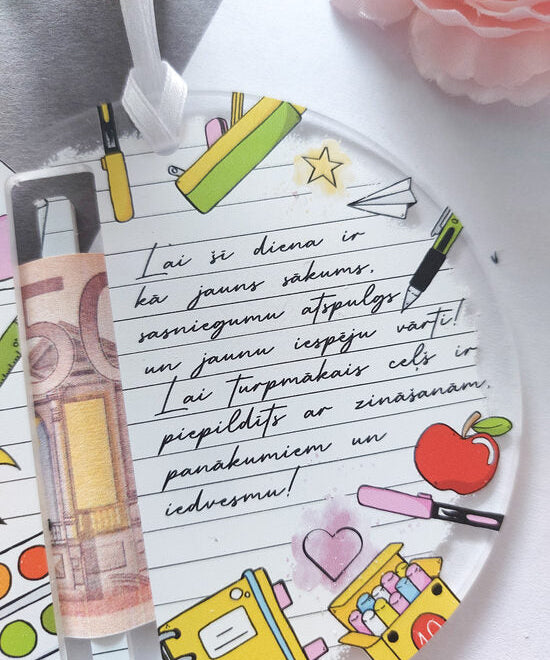 Lai šī diena ir
kā jauns sākums,
sasniegumu atspulgs
un jaunu iespēju vārti!
Lai turpmākais ceļš ir
piepildīts ar zināšanām,
panākumiem un
iedvesmu!
50